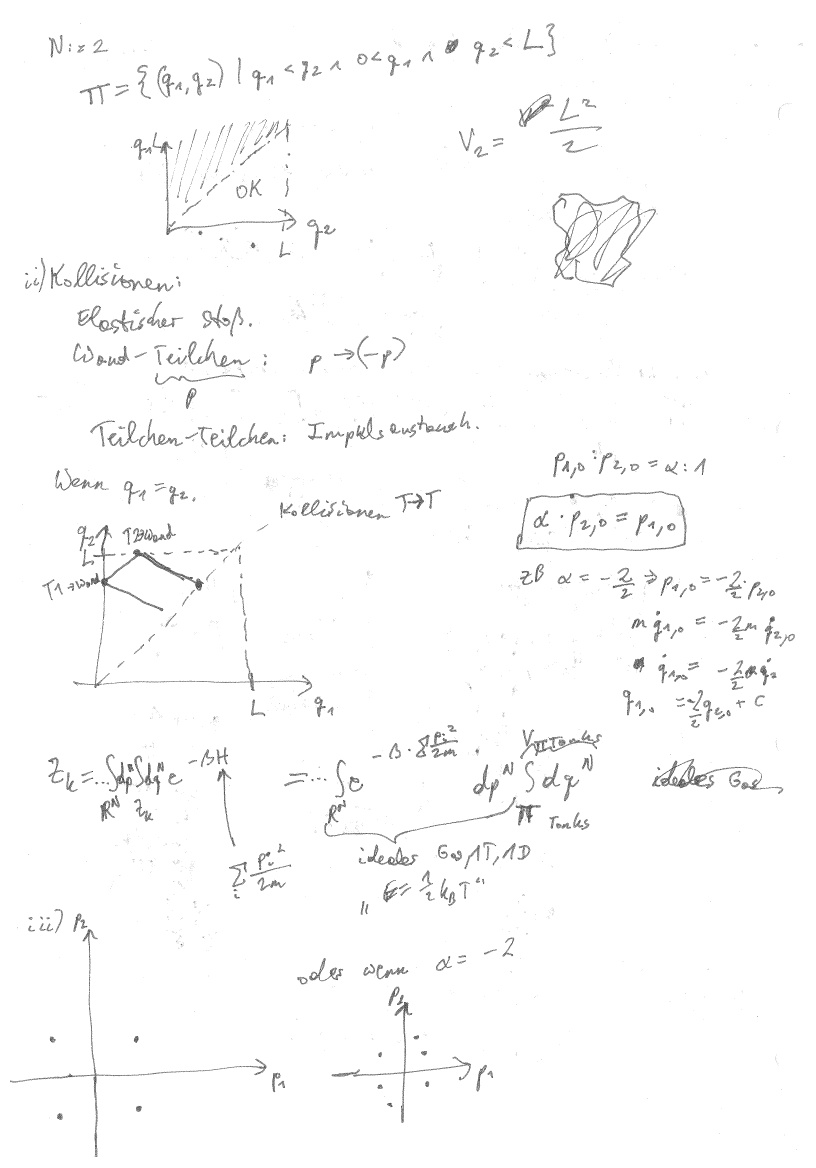 N := 2
π = {(q₁,q₂) | q₁ < q₂ ∧ 0 < q₁ ∧ q₂ < L}
V₂ = L²/2
q₁ L
OK
L q₂
ii) Kollisionen:
Elastischer Stoß.
Wand-Teilchen: p → (-p)
p
Teilchen-Teilchen: Impulsaustausch.
Wenn q₁ = q₂.
p₁,₀ : p₂,₀ = α : 1
α · p₂,₀ = p₁,₀
Kollisionen T→T
q₂
L
T2→Wand
T1→Wand
L q₁
zB α = -2/2 ⇒ p₁,₀ = -2/2 · p₂,₀
m q̇₁,₀ = -2/2 m q̇₂,₀
q̇₁,₀ = -2/2 q̇₂
q₁,₀ = -2/2 q₂,₀ + C
Z_k = ... ∫dpᴺ ∫dqᴺ e^(-βH) = ... ∫ e^(-β · Σ pᵢ²/2m) · dpᴺ ∫ dqᴺ
ℝᴺ Z_k
ℝᴺ
π Tonks
V π Tonks
ideales Gas
Σᵢ pᵢ²/2m
ideales Gas, 1T, 1D
„E = 1/2 k_B T“
iii) p₂
p₁
oder wenn α = -2
p₂
p₁